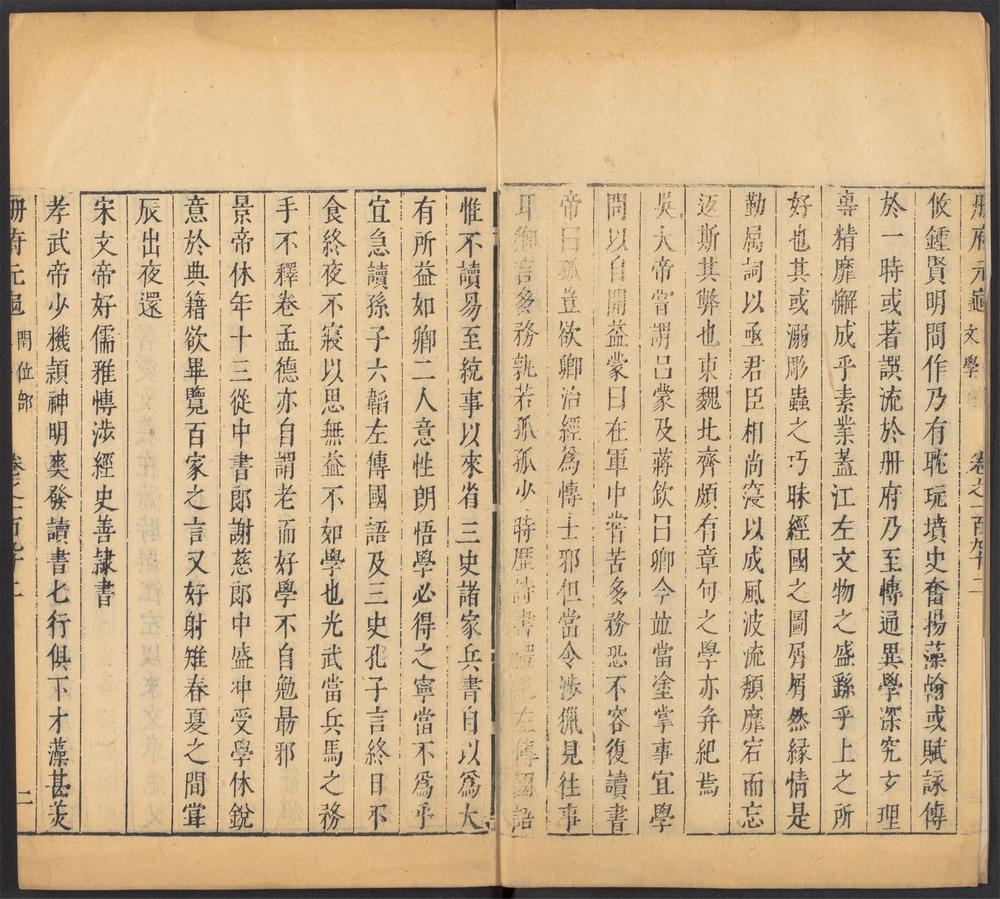 册府元龜 文學 卷之一百九十二
攸鍾賢明間作乃有耽玩墳史奮揚藻翰或賦詠傳
於一時或著譔流於册府乃至愽通異學深究玄理
專精靡懈成乎素業蓋江左文物之盛繇乎上之所
好也其或溺彫蟲之巧昧經國之圖屑屑然縁情是
勤属詞以亟君臣相尚寖以成風波流頽靡宕而忘
返斯其弊也東魏北齊頗有章句之學亦弁紀焉
吳大帝嘗謂吕蒙及蔣欽曰卿今並當塗掌事宜學
問以自開益蒙曰在軍中嘗苦多務恐不容復讀書
帝曰孤豈欲卿治經爲愽士邪但當令涉獵見往事
耳卿言多務孰若孤孤少時歷詩書禮記左傳國語
惟不讀易至統事以來省三史諸家兵書自以爲大
有所益如卿二人意性朗悟學必得之寧當不爲乎
宜急讀孫子六韜左傳國語及三史孔子言終日不
食終夜不寢以思無益不如學也光武當兵馬之務
手不釋卷孟德亦自謂老而好學不自勉朂邪
景帝休年十三從中書郎謝慈郎中盛冲受學休銳
意於典籍欲畢覽百家之言又好射雉春夏之間甞
辰出夜還
宋文帝好儒雅愽涉經史善隷書
孝武帝少機頴神明爽發讀書七行俱下才藻甚美
册府元龜 閏位部 卷之一百九十二 二